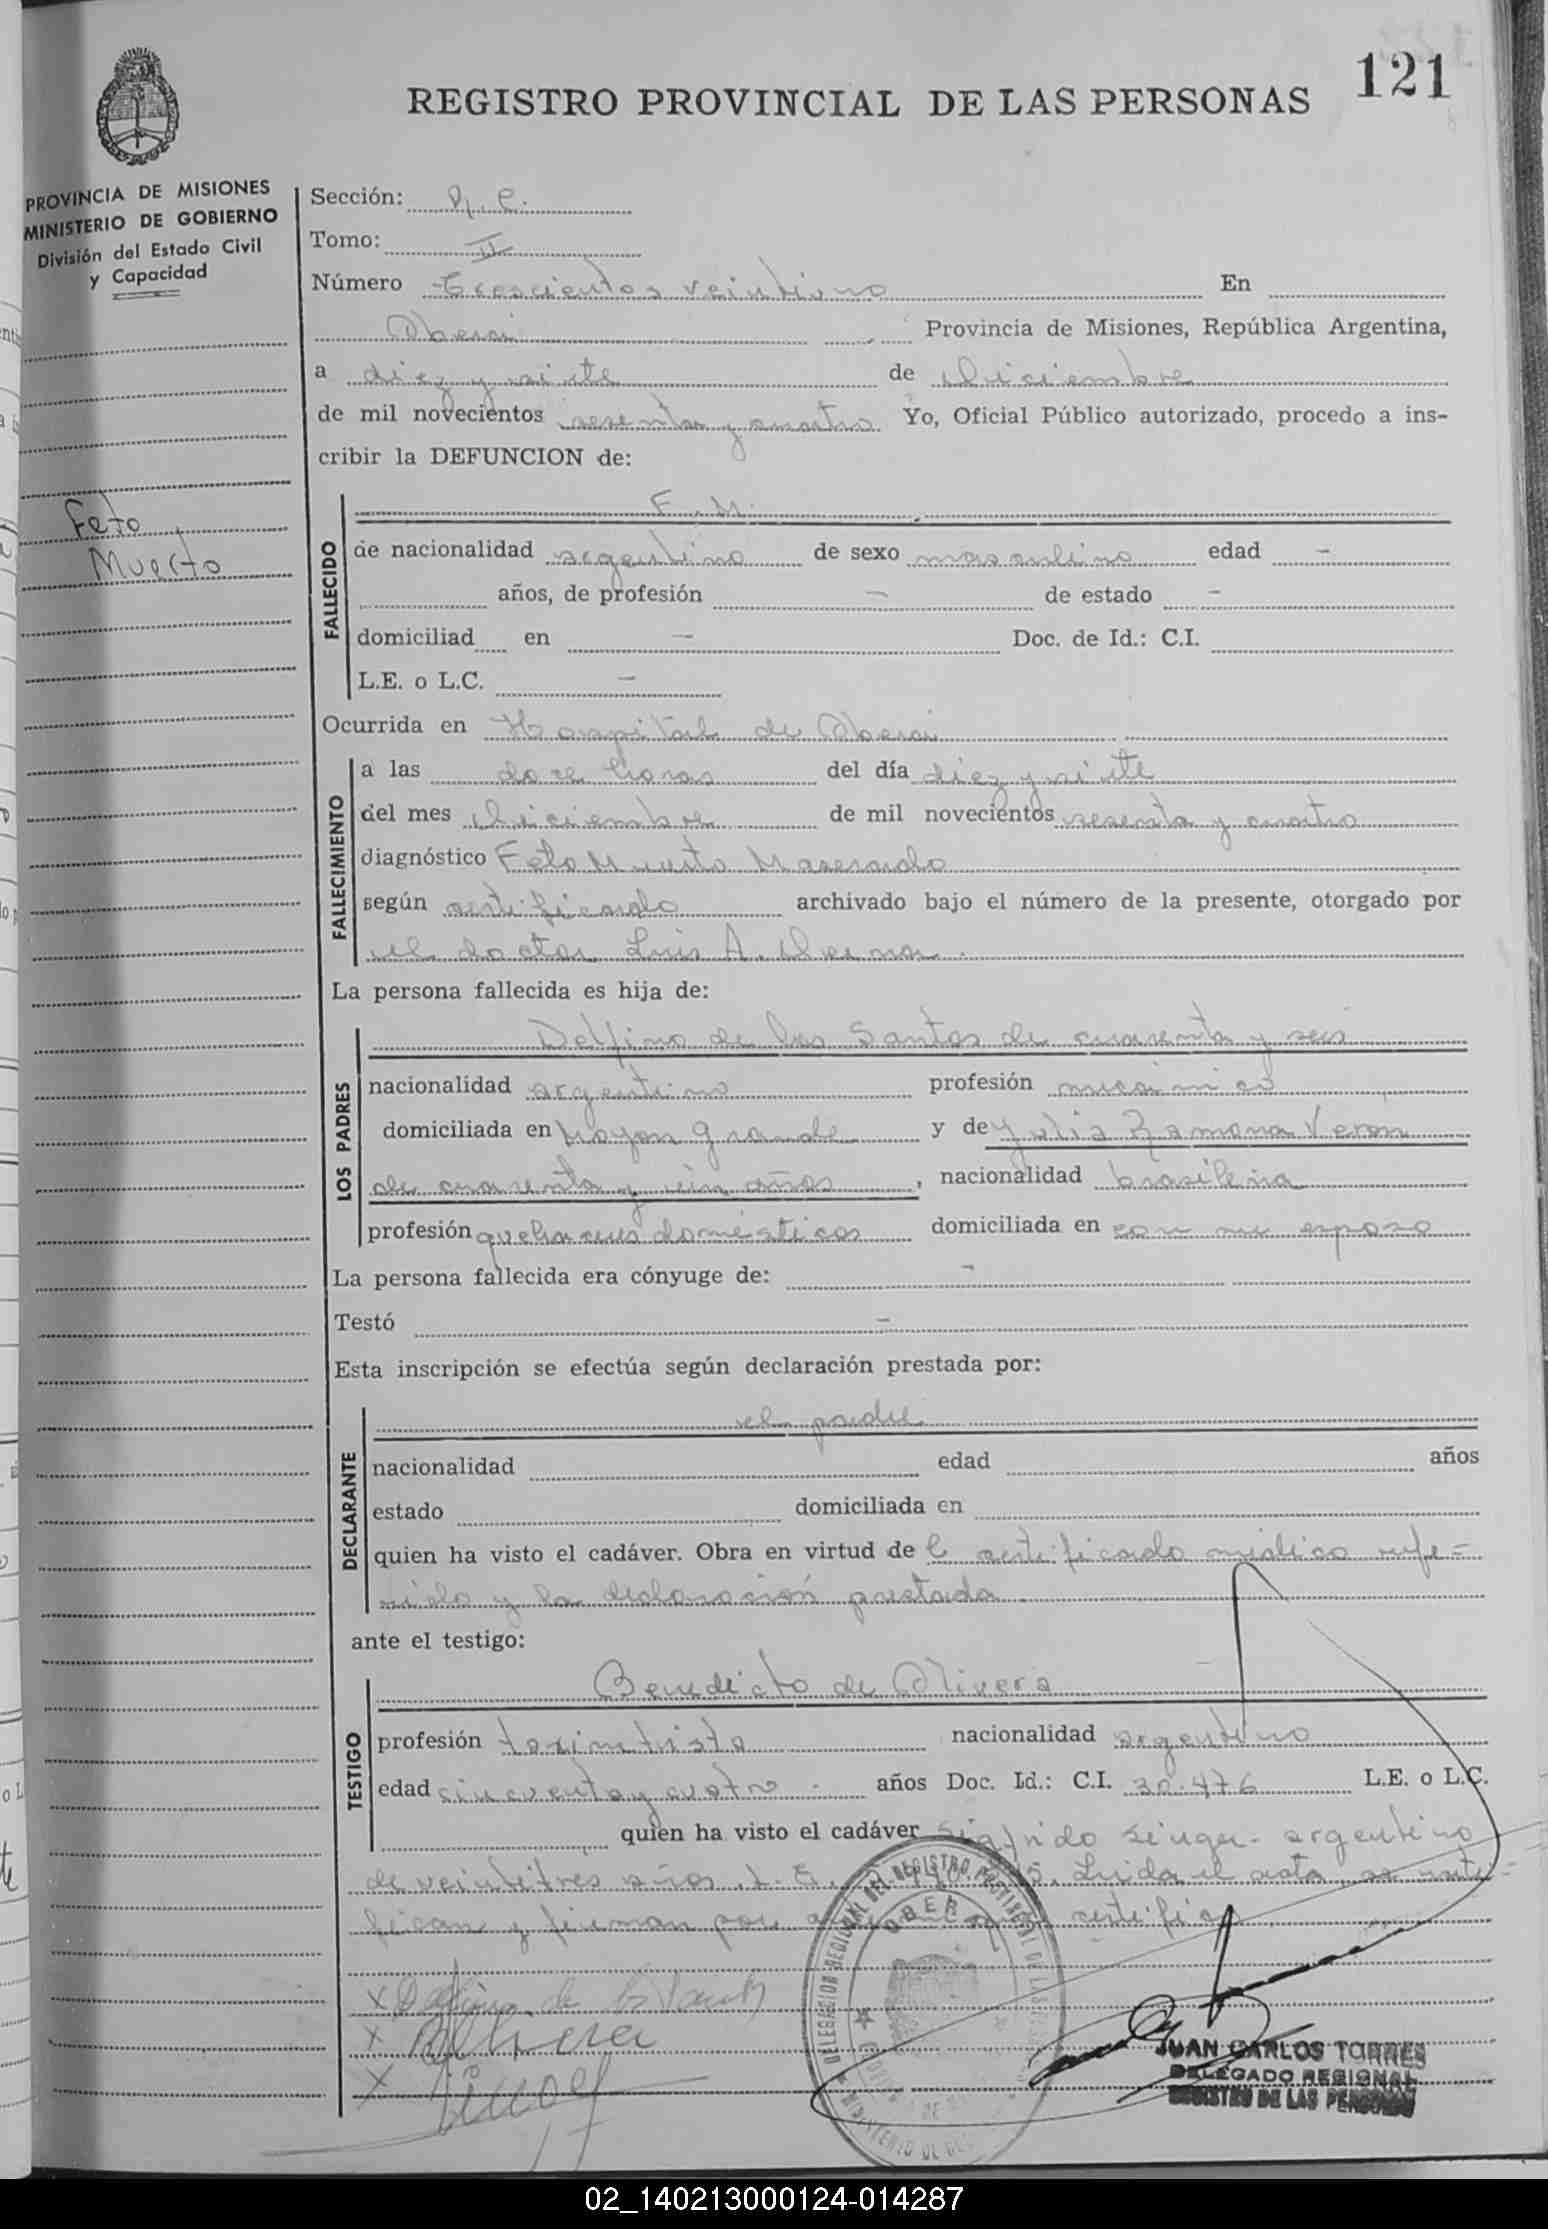 121
REGISTRO PROVINCIAL DE LAS PERSONAS
PROVINCIA DE MISIONES
MINISTERIO DE GOBIERNO
División del Estado Civil
y Capacidad
Feto
Muerto
Sección:
Tomo: II
Número trescientos veintiuno En
Oberá Provincia de Misiones, República Argentina,
a diez y siete de diciembre
de mil novecientos sesenta y cuatro Yo, Oficial Público autorizado, procedo a ins-
cribir la DEFUNCION de:
F. M.
FALLECIDO
de nacionalidad argentino de sexo masculino edad -
años, de profesión - de estado -
domiciliad en - Doc. de Id.: C.I.
L.E. o L.C. -
Ocurrida en Hospital de Oberá
FALLECIMIENTO
a las doce horas del día diez y siete
del mes diciembre de mil novecientos sesenta y cuatro
diagnóstico Feto Muerto Macerado
según certificado archivado bajo el número de la presente, otorgado por
el doctor Luis A.
La persona fallecida es hija de:
LOS PADRES
Delfino de los Santos de cuarenta y seis
nacionalidad argentino profesión mecánico
domiciliada en Hoyon grande y de Julia Ramona Veron
de cuarenta y un años, nacionalidad brasileña
profesión quehaceres domésticos domiciliada en con su esposo
La persona fallecida era cónyuge de: -
Testó -
Esta inscripción se efectúa según declaración prestada por:
DECLARANTE
el padre
nacionalidad edad años
estado domiciliada en
quien ha visto el cadáver. Obra en virtud de l certificado médico refe=
rido y la declaración prestada
ante el testigo:
TESTIGO
Benedicto de Olivera
profesión taximetrista nacionalidad argentino
edad cincuenta y cuatro años Doc. Id.: C.I. 32.476 L.E. o L.C.
quien ha visto el cadáver Sigfrido Singer - argentino
de veintitres años. L. E. Leída el acta, se rati=
fican y firman por ante mí que certifico
Delfino de los Santos
Olivera
DELEGACION REGIONAL DEL REGISTRO PROVINCIAL DE LAS
OBERA
MINISTERIO DE
JUAN CARLOS TORRES
DELEGADO REGIONAL
REGISTRO DE LAS PERSONAS
02_140213000124-014287